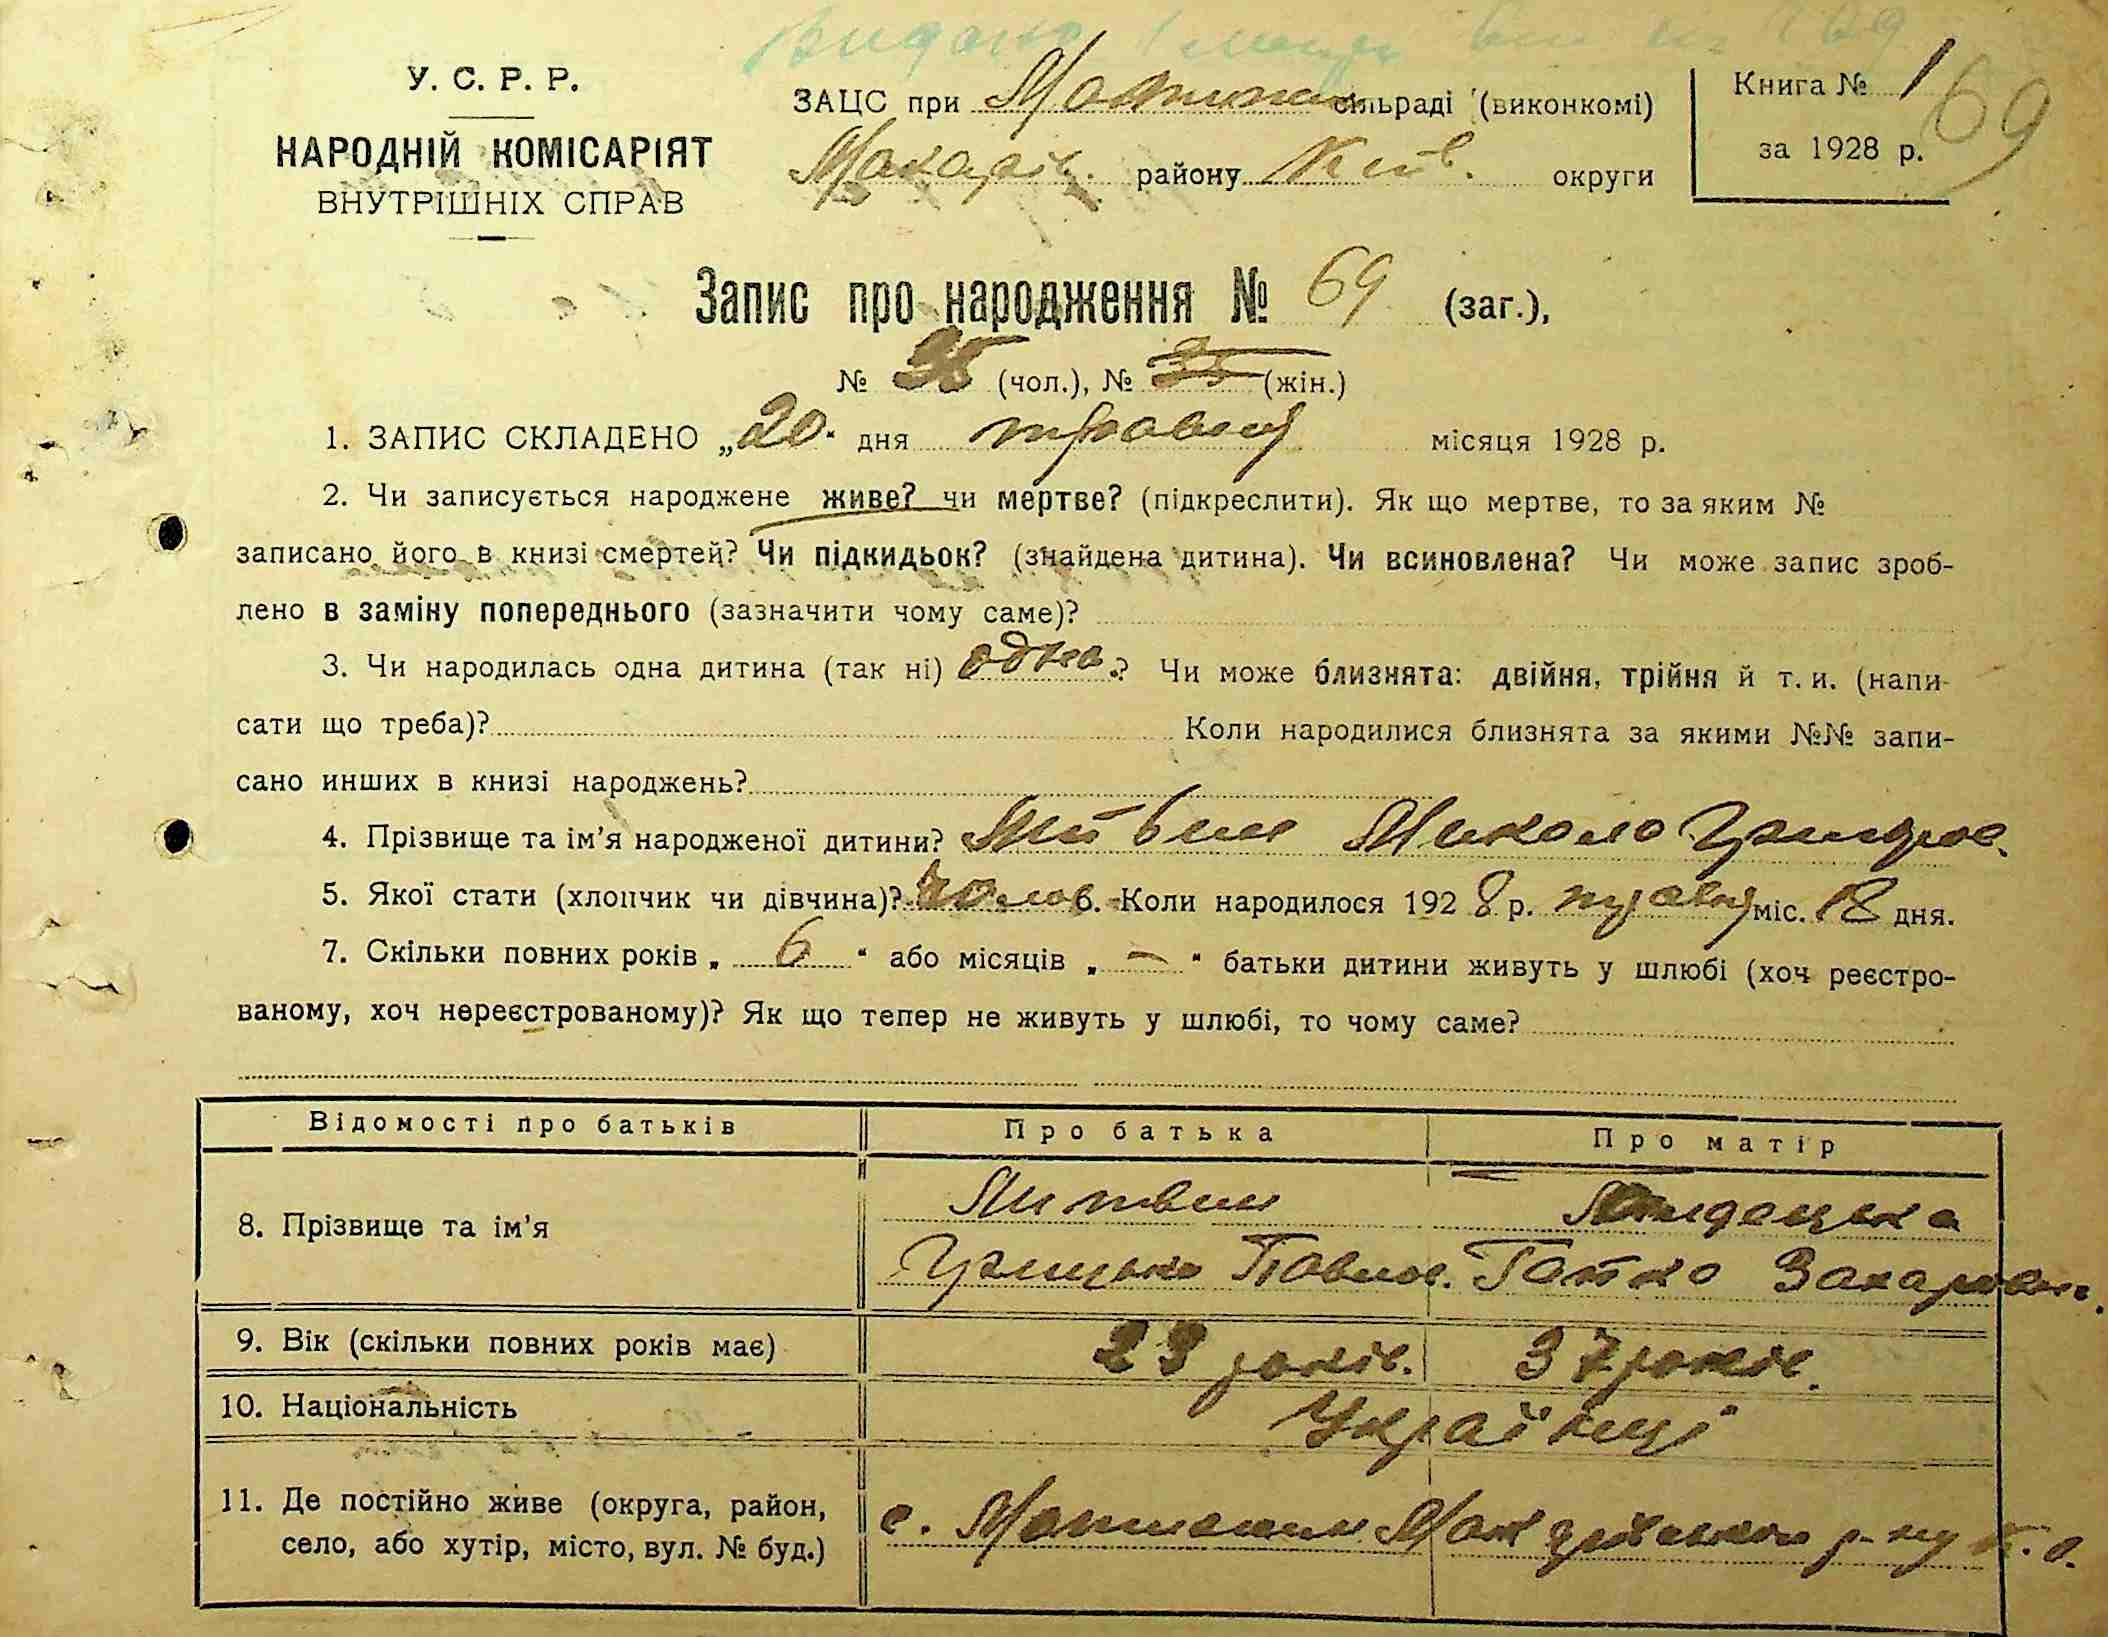 У. С. Р. Р.
НАРОДНІЙ КОМІСАРІЯТ
ВНУТРІШНІХ СПРАВ
ЗАЦС при сільраді (виконкомі)
Макарів. району Київ. округи
Книга № 1
за 1928 р.
69
Запис про народження № 69 (заг.),
№ 35 (чол.), № (жін.)
1. ЗАПИС СКЛАДЕНО „20" дня травня місяця 1928 р.
2. Чи записується народжене живе? чи мертве? (підкреслити). Як що мертве, то за яким №
записано його в книзі смертей? Чи підкидьок? (знайдена дитина). Чи всиновлена? Чи може запис зроб-
лено в заміну попереднього (зазначити чому саме)?
3. Чи народилась одна дитина (так ні) одна? Чи може близнята: двійня, трійня й т. и. (напи-
сати що треба)? Коли народилися близнята за якими №№ запи-
сано инших в книзі народжень?
4. Прізвище та ім'я народженої дитини? Литвин Микола Григоров.
5. Якої стати (хлопчик чи дівчина)? чолов. Коли народилося 1928 р. травня міс. 18 дня.
7. Скільки повних років „ 6 " або місяців „ — " батьки дитини живуть у шлюбі (хоч реєстро-
ваному, хоч нереєстрованому)? Як що тепер не живуть у шлюбі, то чому саме?
Відомості про батьків Про батька Про матір
8. Прізвище та ім'я Литвин
Грицько Павлов. Гапка Захаровн.
9. Вік (скільки повних років має) років. 37 років.
10. Національність Українці
11. Де постійно живе (округа, район,
село, або хутір, місто, вул. № буд.) с. р-ну К. о.